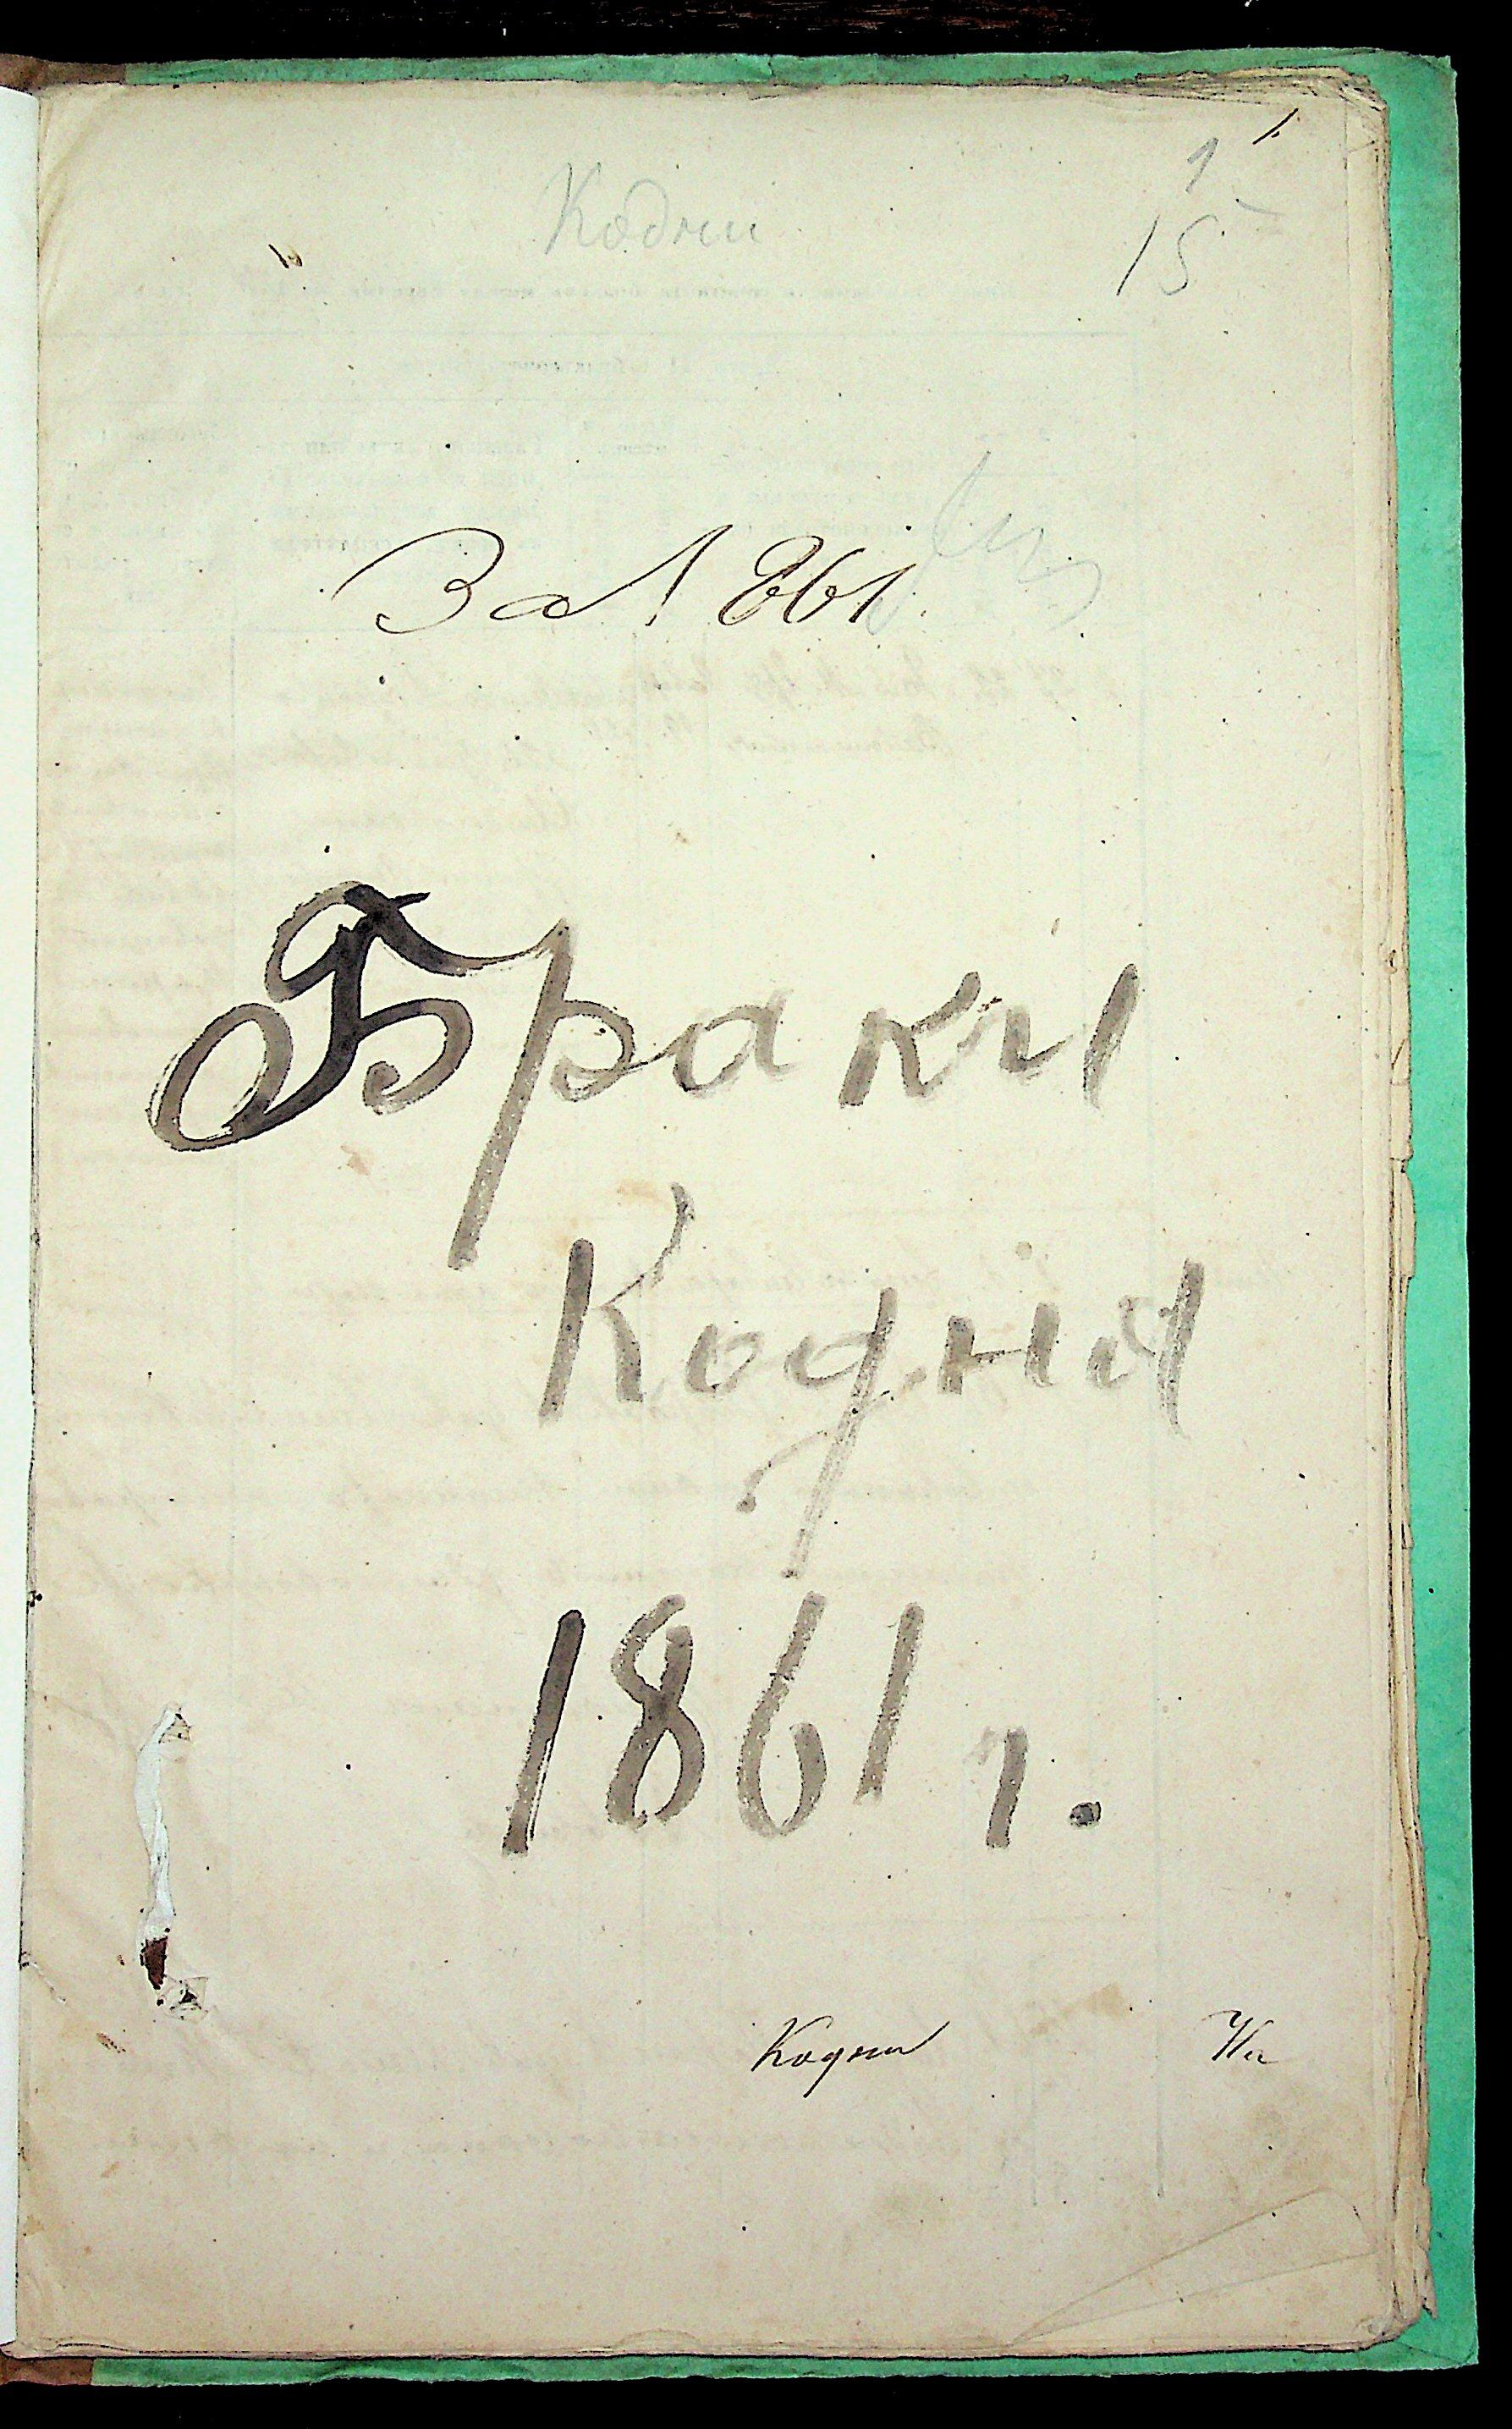 1
1
Кодни
15
За 1861
Браки
Кодня
1861 г.
Кодни